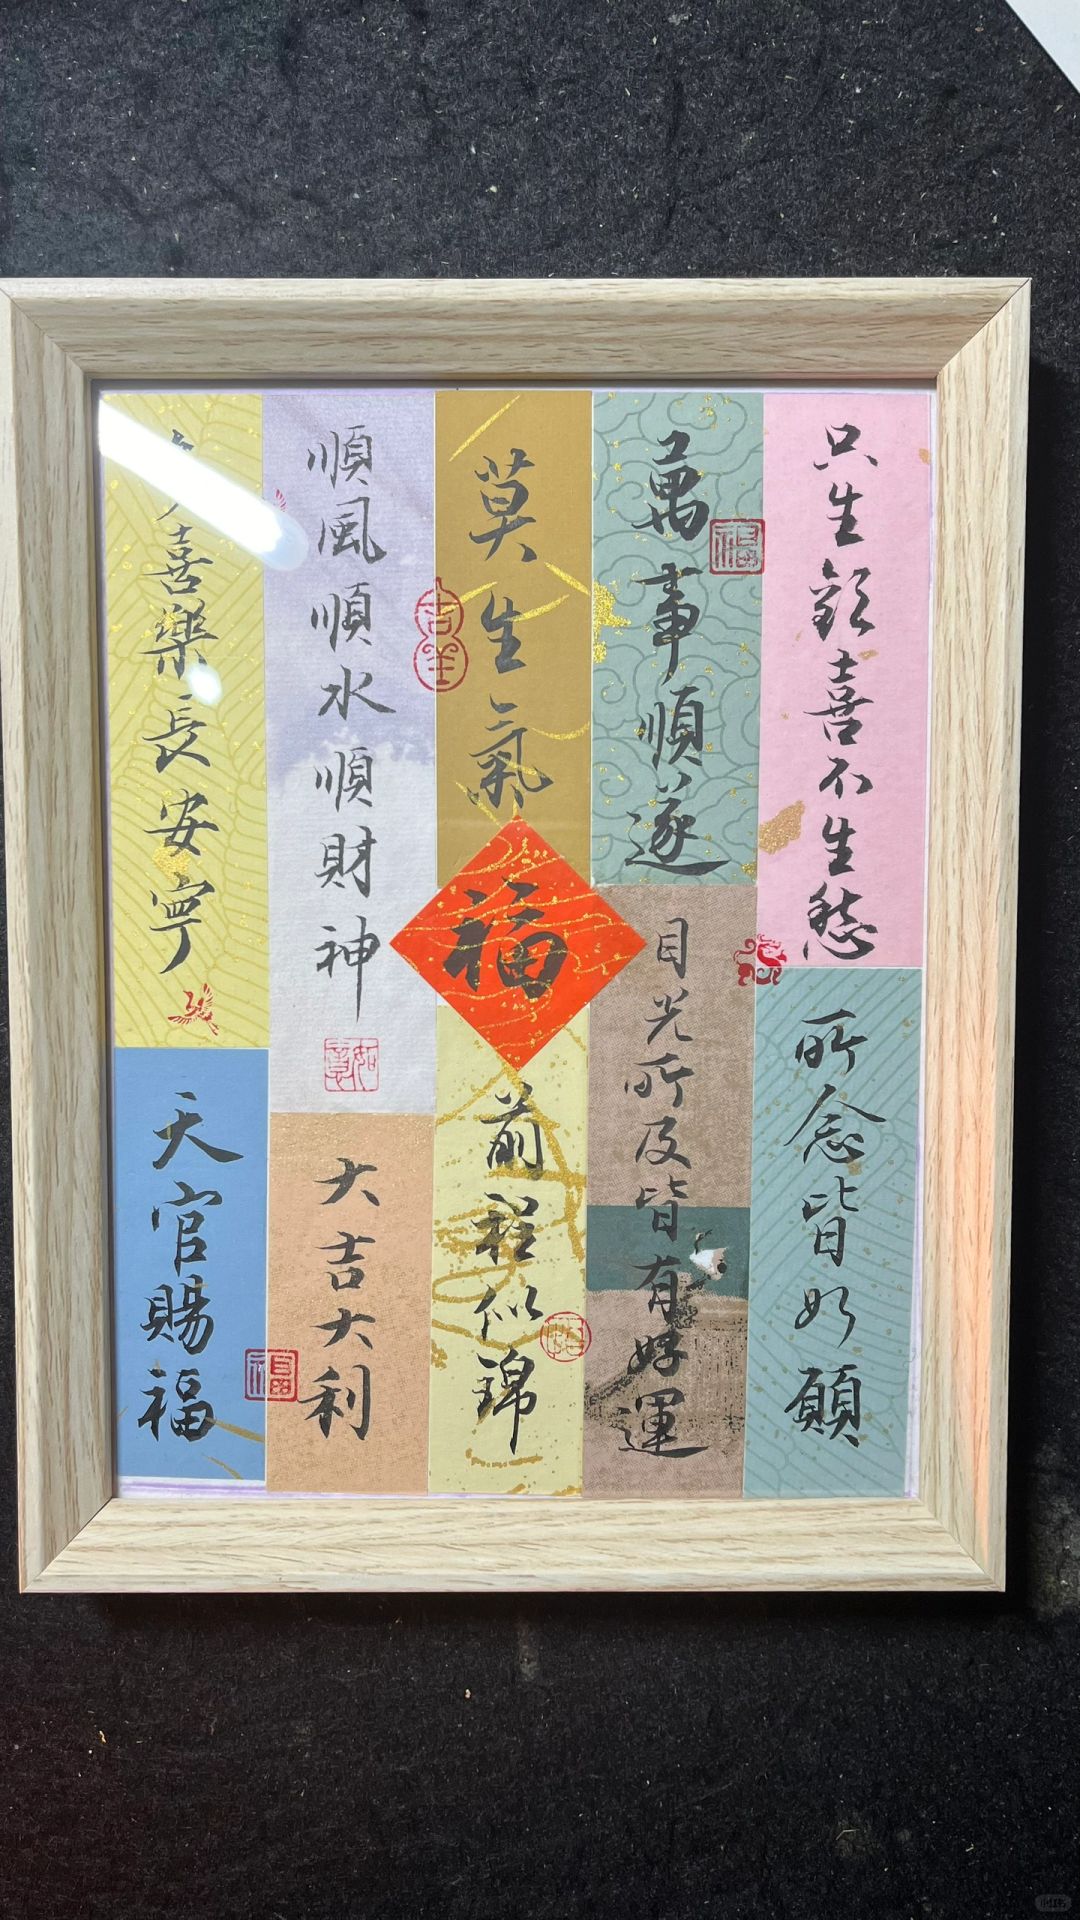 只生歡喜不生愁
所念皆如願
萬事順遂
目光所及皆有好運
莫生氣
福
前程似錦
順風順水順財神
大吉大利
喜樂長安寧
天官賜福
福
吉祥
如意
福